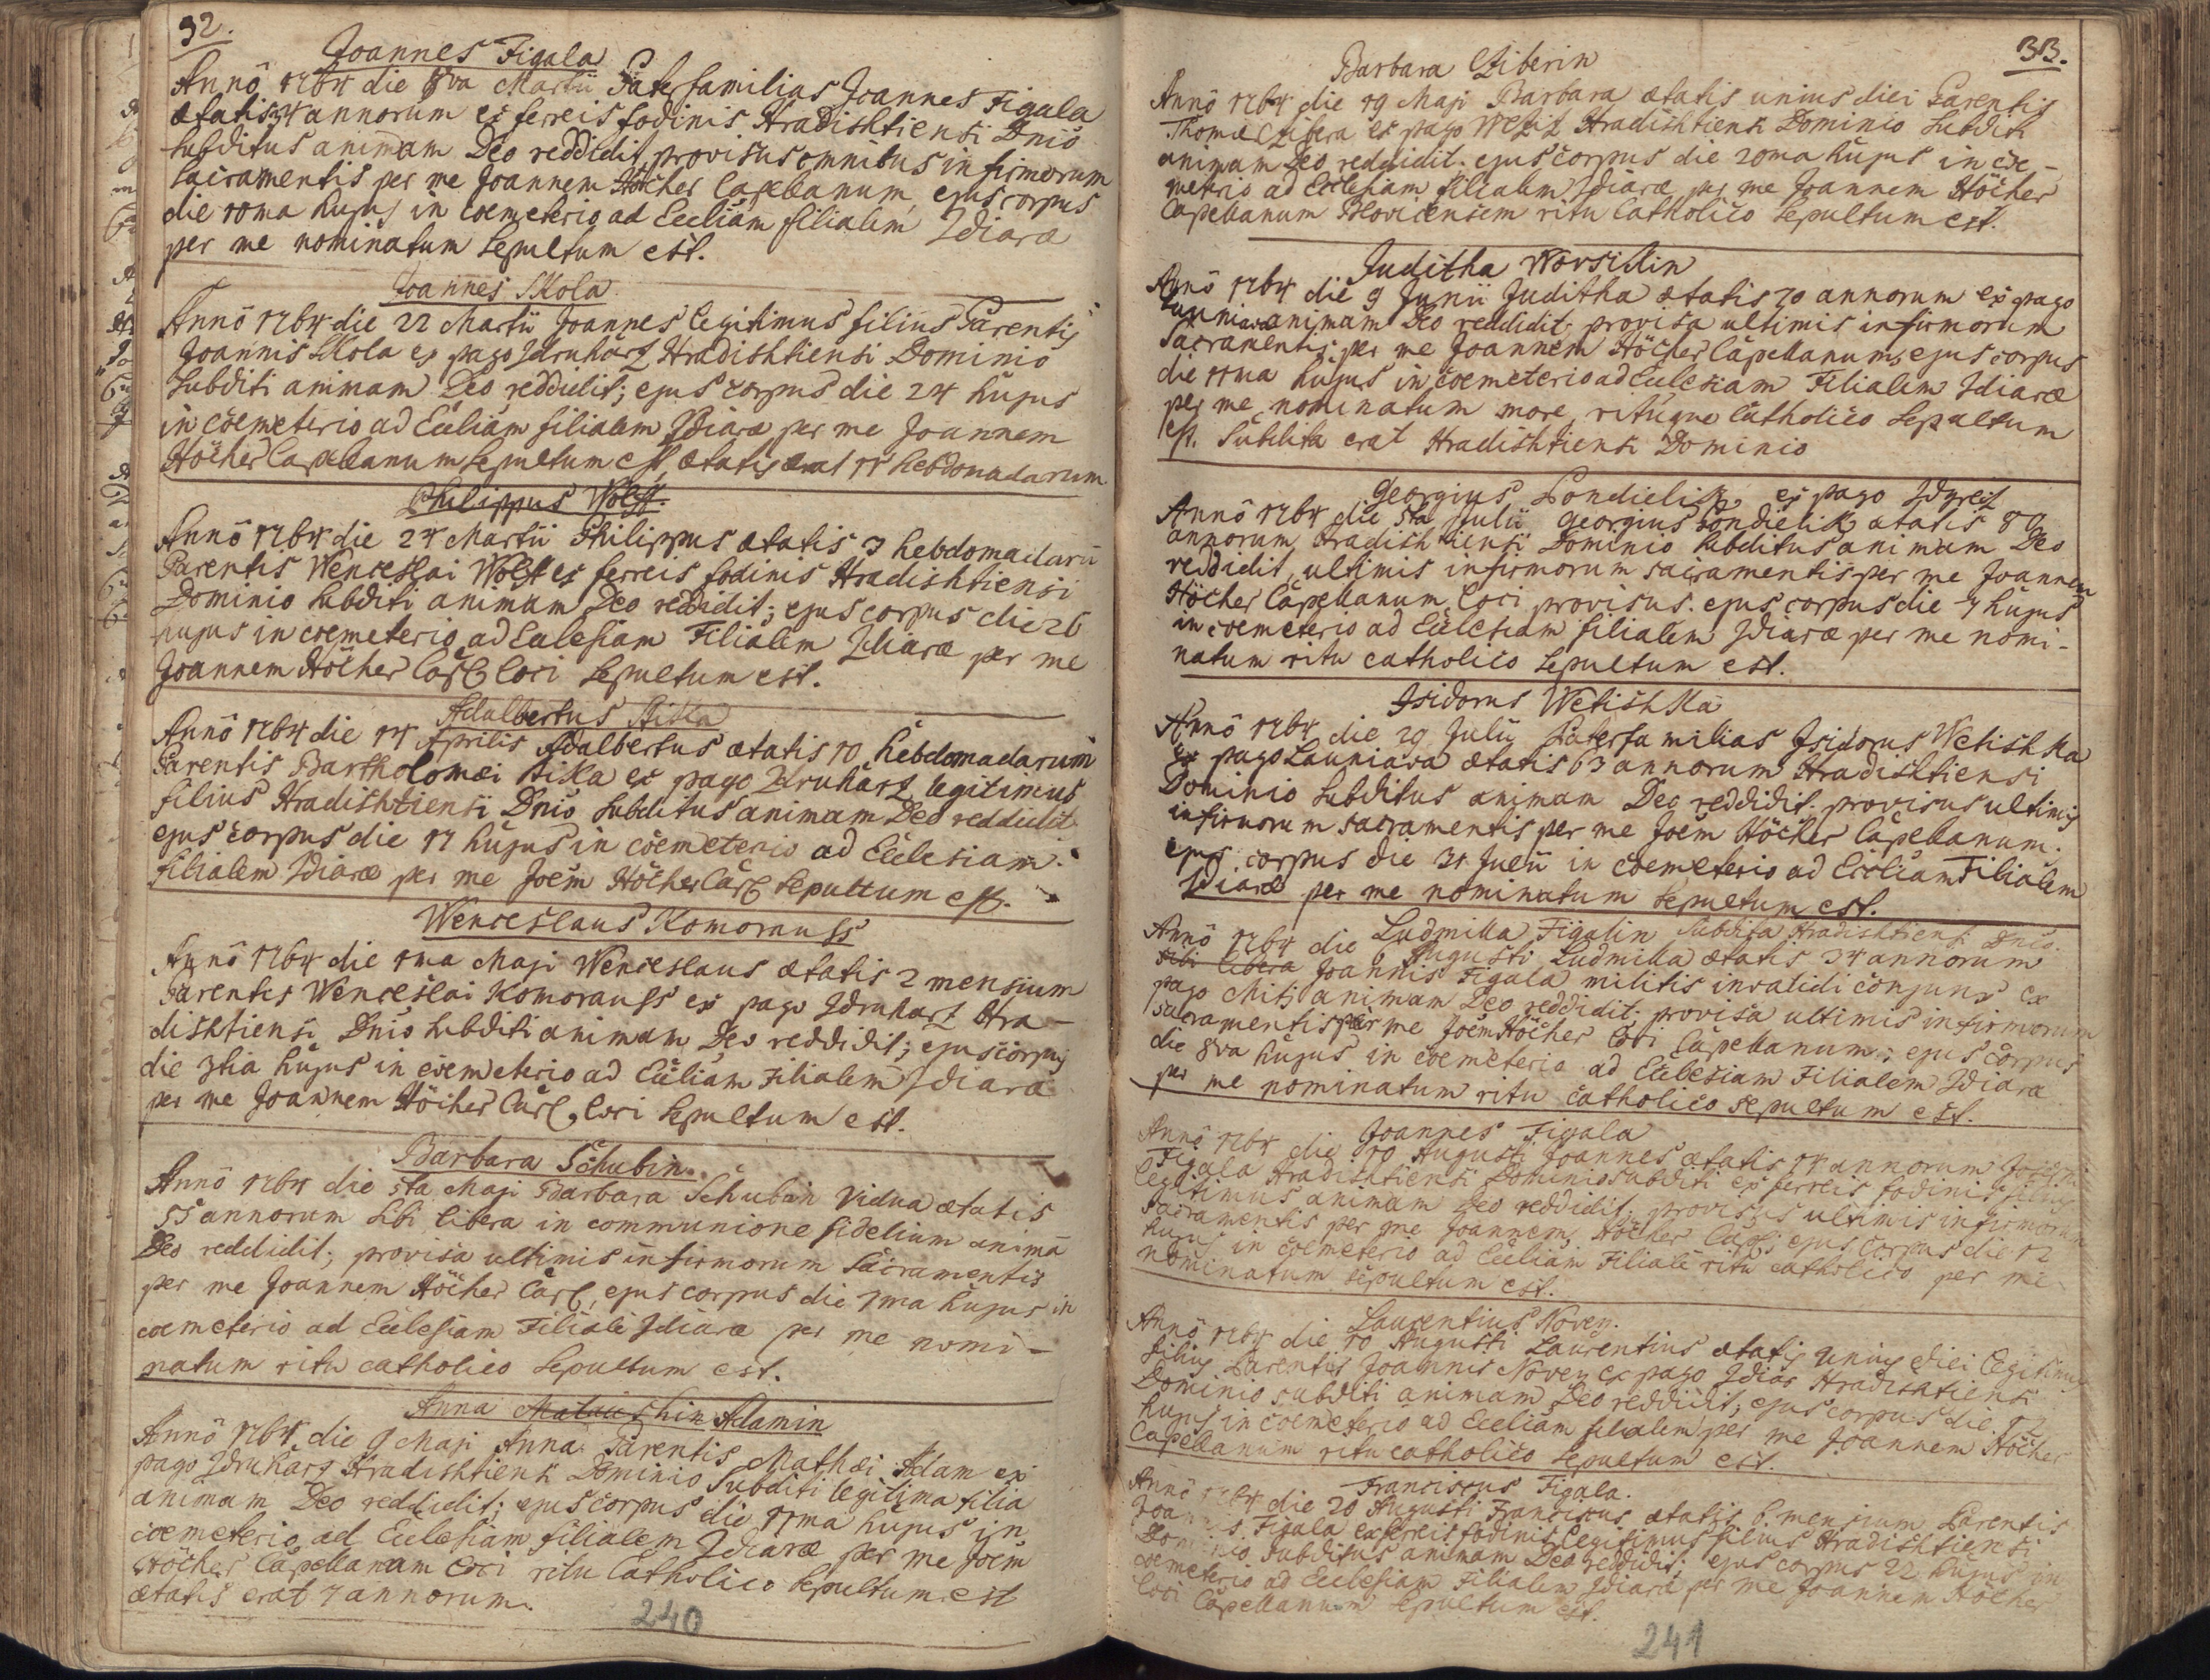 32.
Joannes Figala
Annô 1764 die 8va Martii Paterfamilias Joannes Figala
ætatis 34 annorum ex ferreis fodinis Hradishtiensi Dniô
subditus animam Deo reddidit, provisus omnibus infirmorum
sacramentis per me Joannem Höcher Capellanum, ejus corpus
die 10ma hujus in coemeterio ad Eccliam filialem Ždiaræ
per me nominatum sepultum est.
Joannes Skola
Annô 1764 die 22 Martii Joannes legitimus filius Parentis
Joannis Skola ex pago Zdruharz Hradishtiensi Dominio
subditi animam Deo reddidit; ejus corpus die 24 hujus
in coemeterio ad Eccliam filialem Ždiaræ per me Joannem
Höcher Capellanum sepultum est, ætatis erat 11 hebdomadarum
Philippus Wolff.
Annô 1764 die 24 Martii Philippus ætatis 3 hebdomadarū
Parentis Wenceslai Wolff ex ferreis fodinis Hradishtiensi
Dominio subditi animam Deo reddidit; ejus corpus die 26
hujus in coemeterio ad Ecclesiam Filialem Ždiaræ per me
Joannem Höcher Capl loci sepultum est.
Adalbertus Sika
Annô 1764 die 14 Aprilis Adalbertus ætatis 10 hebdomadarum
Parentis Bartholomæi Sika ex pago Zdruharz legitimus
filius Hradishtiensi Dniô subditus animam Deo reddidit
ejus corpus die 17 hujus in coemeterio ad Ecclesiam
filialem Ždiaræ per me Joem Höcher Capl sepultum est.
Wenceslaus Komorauss
Annô 1764 die 1ma Maji Wenceslaus ætatis 2 mensium
Parentis Wenceslai Komorauss ex pago Zdruharz Hra-
dishtiensi Dniô subditi animam Deo reddidit; ejus corpus
die 3tia hujus in coemeterio ad Eccliam Filialem Ždiaræ
per me Joannem Höcher Capl loci sepultum est.
Barbara Schubin
Annô 1764 die 5ta Maji Barbara Schubin Vidua ætatis
55 annorum sibi libera in communione fidelium animā
Deo reddidit; provisa ultimis infirmorum Sacramentis
per me Joannem Höcher Capl, ejus corpus die 7ma hujus in
coemeterio ad Ecclesiam Filialē Ždiaræ per me nomi-
natum ritu catholico sepultum est.
Anna Adamin
Annô 1764 die 9 Maji Anna Parentis Mathæi Adam ex
pago Zdruharz Hradishtiensi Dominio subditi legitima filia
animam Deo reddidit; ejus corpus die 11ma hujus in
coemeterio ad Ecclesiam filialem Ždiaræ per me Joem
Höcher Capellanum loci ritu Catholico sepultum est
ætatis erat 7 annorum.
240
33.
Barbara Cziberin
Annô 1764 die 19 Maji Barbara ætatis unius diei Parentis
Thomæ Czibera ex pago Hradishtiensi Dominio subditi
animam Deo reddidit. ejus corpus die 20ma hujus in coe-
meterio ad Ecclesiam filialem Ždiaræ per me Joannem Höcher
Capellanum Blovicensem ritu Catholico sepultum est.
Juditha Worsikin
Annô 1764 die 9 Junii Juditha ætatis 70 annorum ex pago
animam Deo reddidit provisa ultimis infirmorum
Sacramentis per me Joannem Höcher Capellanum, ejus corpus
die 11ma hujus in coemeterio ad Ecclesiam Filialem Ždiaræ
per me nominatum more, rituque Catholico sepultum
est. Subdita erat Hradishtiensi Dominio
Georgius Pondielik, ex pago
Annô 1764 die 5ta Julii Georgius Pondielik ætatis 89
annorum Hradishtiensi Dominio subditus animam Deo
reddidit, ultimis infirmorum sacramentis per me Joannem
Höcher Capellanum loci provisus. ejus corpus die 7 hujus
in coemeterio ad Ecclesiam filialem Ždiaræ per me nomi-
natum ritu catholico sepultum est.
Isidorus Wetishka
Annô 1764 die 29 Julii Paterfamilias Isidorus Wetishka
ex pago Launiava ætatis 63 annorum Hradishtiensi
Dominio subditus animam Deo reddidit. provisus ultimis
infirmorum sacramentis per me Joem Höcher Capellanum.
ejus corpus die 31 Julii in coemeterio ad Eccliam Filialem
Ždiaræ per me nominatum sepultum est.
Ludmilla Figalin subdita Hradishtiensi Dniô.
Annô 1764 die 6 Augusti Ludmilla ætatis 34 annorum
sibi libera Joannis Figala militis invalidi conjunx ex
pago Miti animam Deo reddidit. provisa ultimis infirmorum
sacramentis per me Joem Höcher loci Capellanum; ejus corpus
die 8va hujus in coemeterio ad Ecclesiam Filialem Ždiaræ
per me nominatum ritu catholico sepultum est.
Joannes Figala
Annô 1764 die 10 Augusti Joannes ætatis 14 annorum
Figala Hradishtiensi Dominio subditi ex ferreis fodinis filius
legitimus animam Deo reddidit; provisus ultimis infirmorum
sacramentis per me Joannem Höcher Capl; ejus corpus die 12
hujus in coemeterio ad Eccliam Filialē ritu catholico per me
nominatum sepultum est.
Laurentius Noven.
Annô 1764 die 10 Augusti Laurentius ætatis unius diei legitimus
filius Parentis Joannis Noven ex pago Ždiar Hradishtiensi
Dominio subditi animam Deo reddidit; ejus corpus die 12
hujus in coemeterio ad Eccliam filialem per me Joannem Höcher
Capellanum ritu catholico sepultum est.
Franciscus Figala.
Annô 1764 die 20 Augusti Franciscus ætatis 6 mensium Parentis
Joannis Figala ex ferreis fodinis legitimus filius Hradishtiensi
Dominio subditus animam Deo reddidit; ejus corpus 22 hujus in
coemeterio ad Ecclesiam Filialem Ždiaræ per me Joannem Höcher
loci Capellanum sepultum est.
241